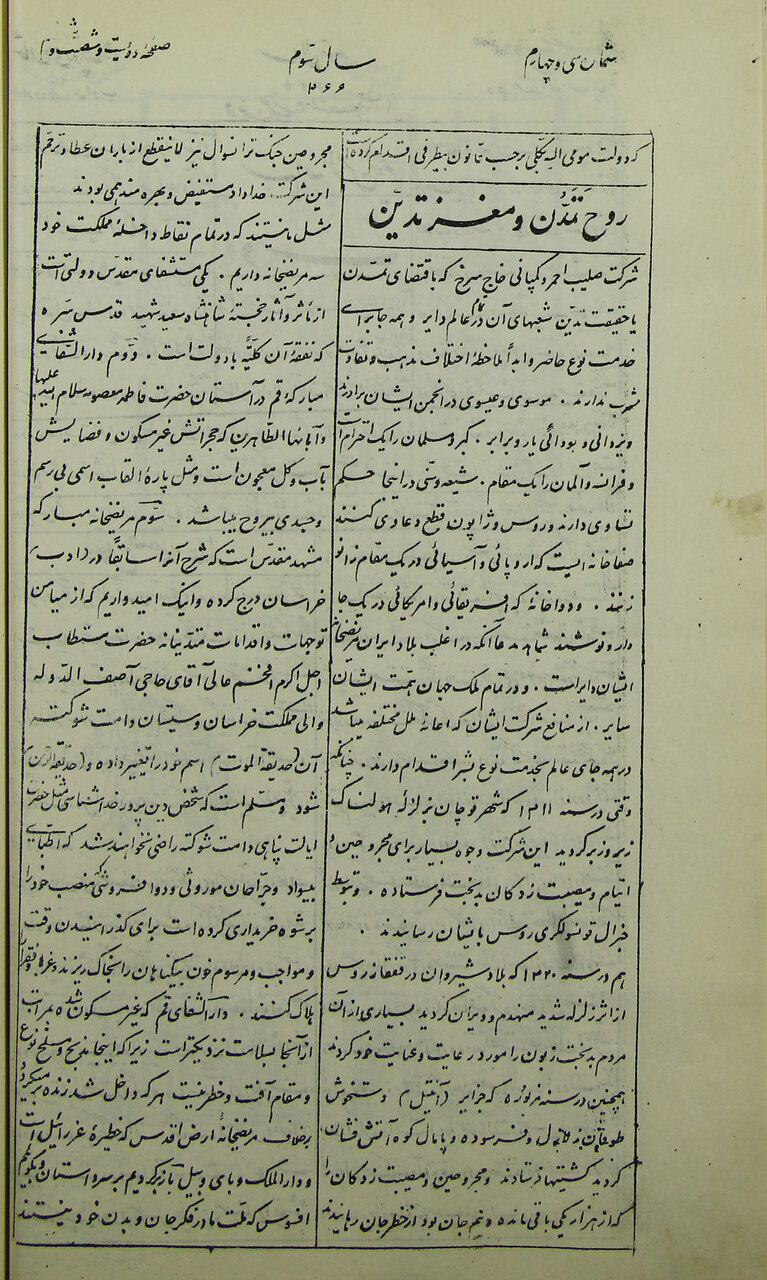 شماره سی و چهارم
سال سوم
۲۶۶
صفحه دویست و شصت و
که دولت مومی الیه بکلی برحسب قانون بیطرفی اقدام کرده است
روح تمدن و مغز تدین
شرکت صلیب احمر و کمپانی خاج سرخ که باقتضای تمدن
یا حقیقت تدین شعبهای آن در تمام عالم دایر و همه جا برای
خدمت نوع حاضر و ابداً ملاحظهٔ اختلاف مذهب و تفاوت
مشرب ندارند . موسوی و عیسوی در انجمن ایشان برادرند
و یزدانی و بودائی یار و برابر . گبر و مسلمان را یک احترام است
و فرانسه و آلمان را یک مقام . شیعه و سنی در اینجا حکم
تساوی دارند و روس و ژاپون قطع دعاوی کنند
شفاخانه ایست که اروپائی و آسیائی در یک مقام زانو
زنند . و دواخانه که افریقائی و امریکائی در یک جا
دارو نوشند شاهد مدعا آنکه در اغلب بلاد ایران مریضخانه
ایشان دایر است . و در تمام ملک جهان همت ایشان
سایر . از منافع شرکت ایشان که اعانه ملل مختلفه میباشد
در همه جای عالم بخدمت نوع بشر اقدام دارند . چنانکه
وقتی در سنه ۱۳۱۱ که شهر قوچان بزلزله هولناک
زیر و زبر گردید این شرکت وجوه بسیار برای مجروحین و
ایتام و مصیبت زدکان بدبخت فرستاده . و بتوسط
جنرال قونسولگری روس بایشان رسانیدند .
هم در سنه ۱۳۲۰ که بلاد شیروان در قفقاز روس
از اثر زلزله شدید منهدم و ویران گردید بسیاری از آن
مردم بدبخت زبون را مورد رعایت و عنایت خود کردند
همچنین در سنه مزبوره که جزایر (آنتیل) دستخوش
طوفان و فرسوده و پایمال کوه آتش فشان
گردید کشتیها فرستادند و مجروحین و مصیبت زدکان را
که از هزار یکی باقی مانده و نیم جان بود از خطر جان رهانیدند
مجروحین جنگ ترانسوال نیز لاینقطع از باران عطا و ترحم
این شرکت خداداد مستفیض و بهره مند همی بودند
مثل ما نیستند که در تمام نقاط داخلهٔ مملکت خود
سه مریضخانه داریم . یکی مستشفای مقدس دولتی است
از مآثر و آثار خجستهٔ شاهنشاه سعید شهید قدس سره
که نفقهٔ آن کلیه با دولت است . دوم دارالشفای
مبارکهٔ قم در آستان حضرت فاطمه معصومه سلام الله علیها
و آبائها الطاهرین که حجراتش غیر مسکون و فضایش
بآب و گل معجون است و مثل پارهٔ القاب اسمی بی رسم
و جسدی بیروح میباشد . سوم مریضخانه مبارکه
مشهد مقدس است که شرح آنرا سابقاً در (ادب)
خراسان درج کرده و اینک امیدواریم که از میامن
توجهات و اقدامات متدینانه حضرت مستطاب
اجل اکرم افخم عالی آقای حاجی آصف الدوله
والی مملکت خراسان و سیستان دامت شوکته
آن (حدیقة الموت) اسم خود را تغییر داده و
شود و مسلم است که شخص دین پرور خداشناسی مثل حضرت
ایالت پناهی دامت شوکته راضی نخواهند شد که اطبای
بیسواد و جراحان موروثی و دوافروشی که منصب خود را
برشوه خریداری کرده است برای گذرانیدن وقت
و مواجب و مرسوم خون بیگناهان را بخاک ریزند و غربا و فقرا
هلاک کنند . دارالشفای قم که غیر مسکون شده بمراتب
از آنجا بسلامت نزدیکتر است زیرا که اینجا مذبح و مسلخ نوع
و مقام آفت و خطر نیست هر که داخل شد زنده بر میگردد
برخلاف مریضخانهٔ ارض اقدس که حظیرهٔ عزرائیل است
و دارالملک وبای و بیل باز گردیم بر سر داستان و بگوئیم
افسوس که ملت ما در فکر جان و بدن خود نیستند